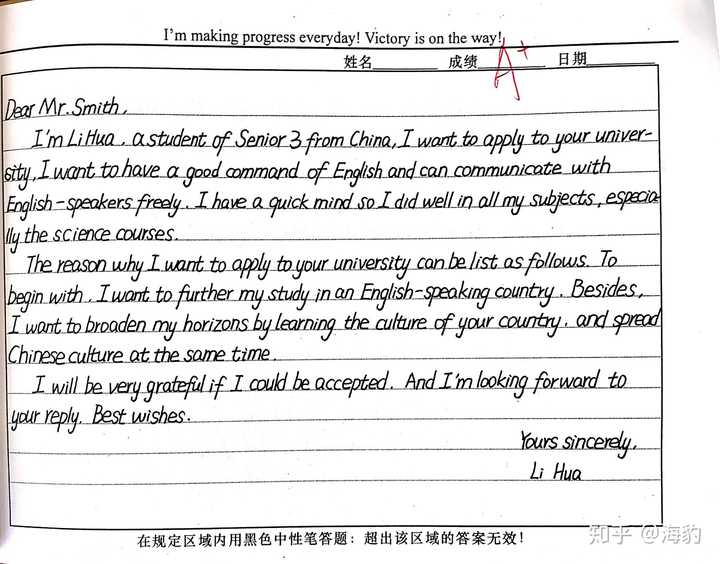 I'm making progress everyday! Victory is on the way!
姓名 成绩 A+ 日期
Dear Mr. Smith,
I'm Li Hua, a student of Senior 3 from China, I want to apply to your univer-
sity, I want to have a good command of English and can communicate with
English-speakers freely. I have a quick mind so I did well in all my subjects, especia-
lly the science courses.
The reason why I want to apply to your university can be list as follows. To
begin with, I want to further my study in an English-speaking country. Besides,
I want to broaden my horizons by learning the culture of your country, and spread
Chinese culture at the same time.
I will be very grateful if I could be accepted. And I'm looking forward to
your reply. Best wishes.
Yours sincerely,
Li Hua
在规定区域内用黑色中性笔答题：超出该区域的答案无效！
知乎 @海豹